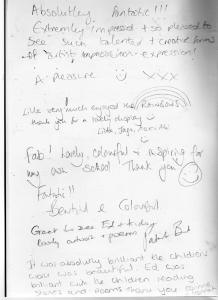 Absolutley Fantastic!!!
Extremley impressed + so pleased to
see such talented + creative forms
of artist impression expression!
A Pleasure XXX
Lilla very much enjoyed the Rainbows
thank you for a lovely display
Fab! Lovely, colourful & inspiring for
my own school Thank you
Fantastic!!
Beautiful & Colourful
Great to see Ed + Friday
lovely artwork + poems
It was absolutly brilliant the childrens
work was beautiful. Ed was
brilliant with the children reading
stories and poems thank you